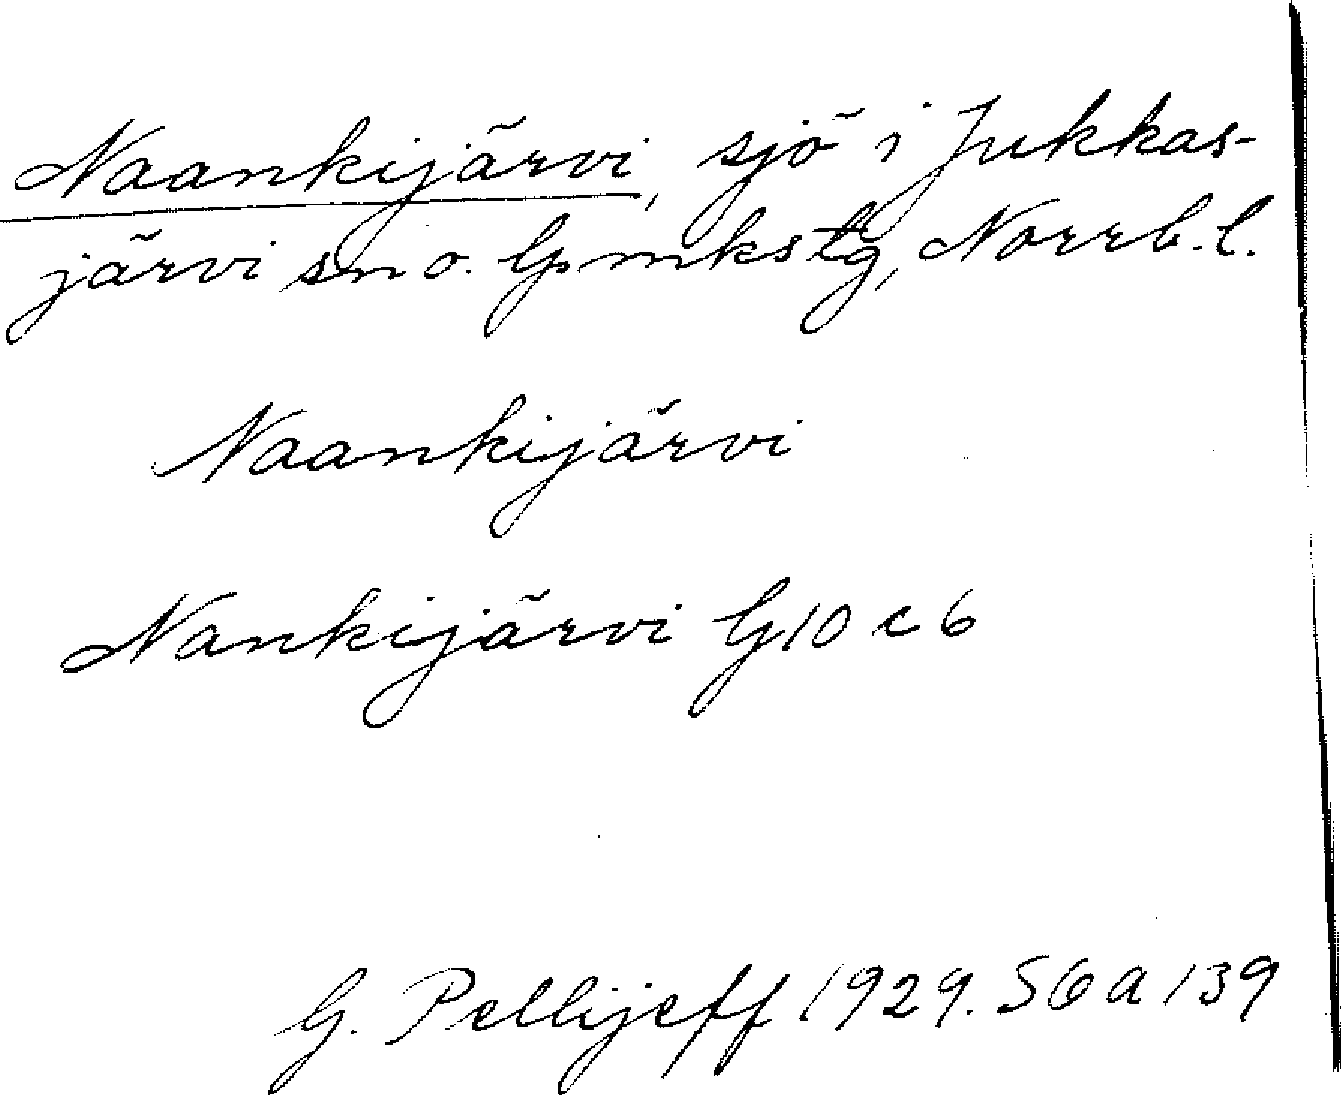 Naankijärvi, sjö i Jukkas-
järvi sn o. Gp mkstg, Norrb. l.
Naankijärvi
Nankijärvi G10 c 6
G. Pellijeff 1929. S6a 139